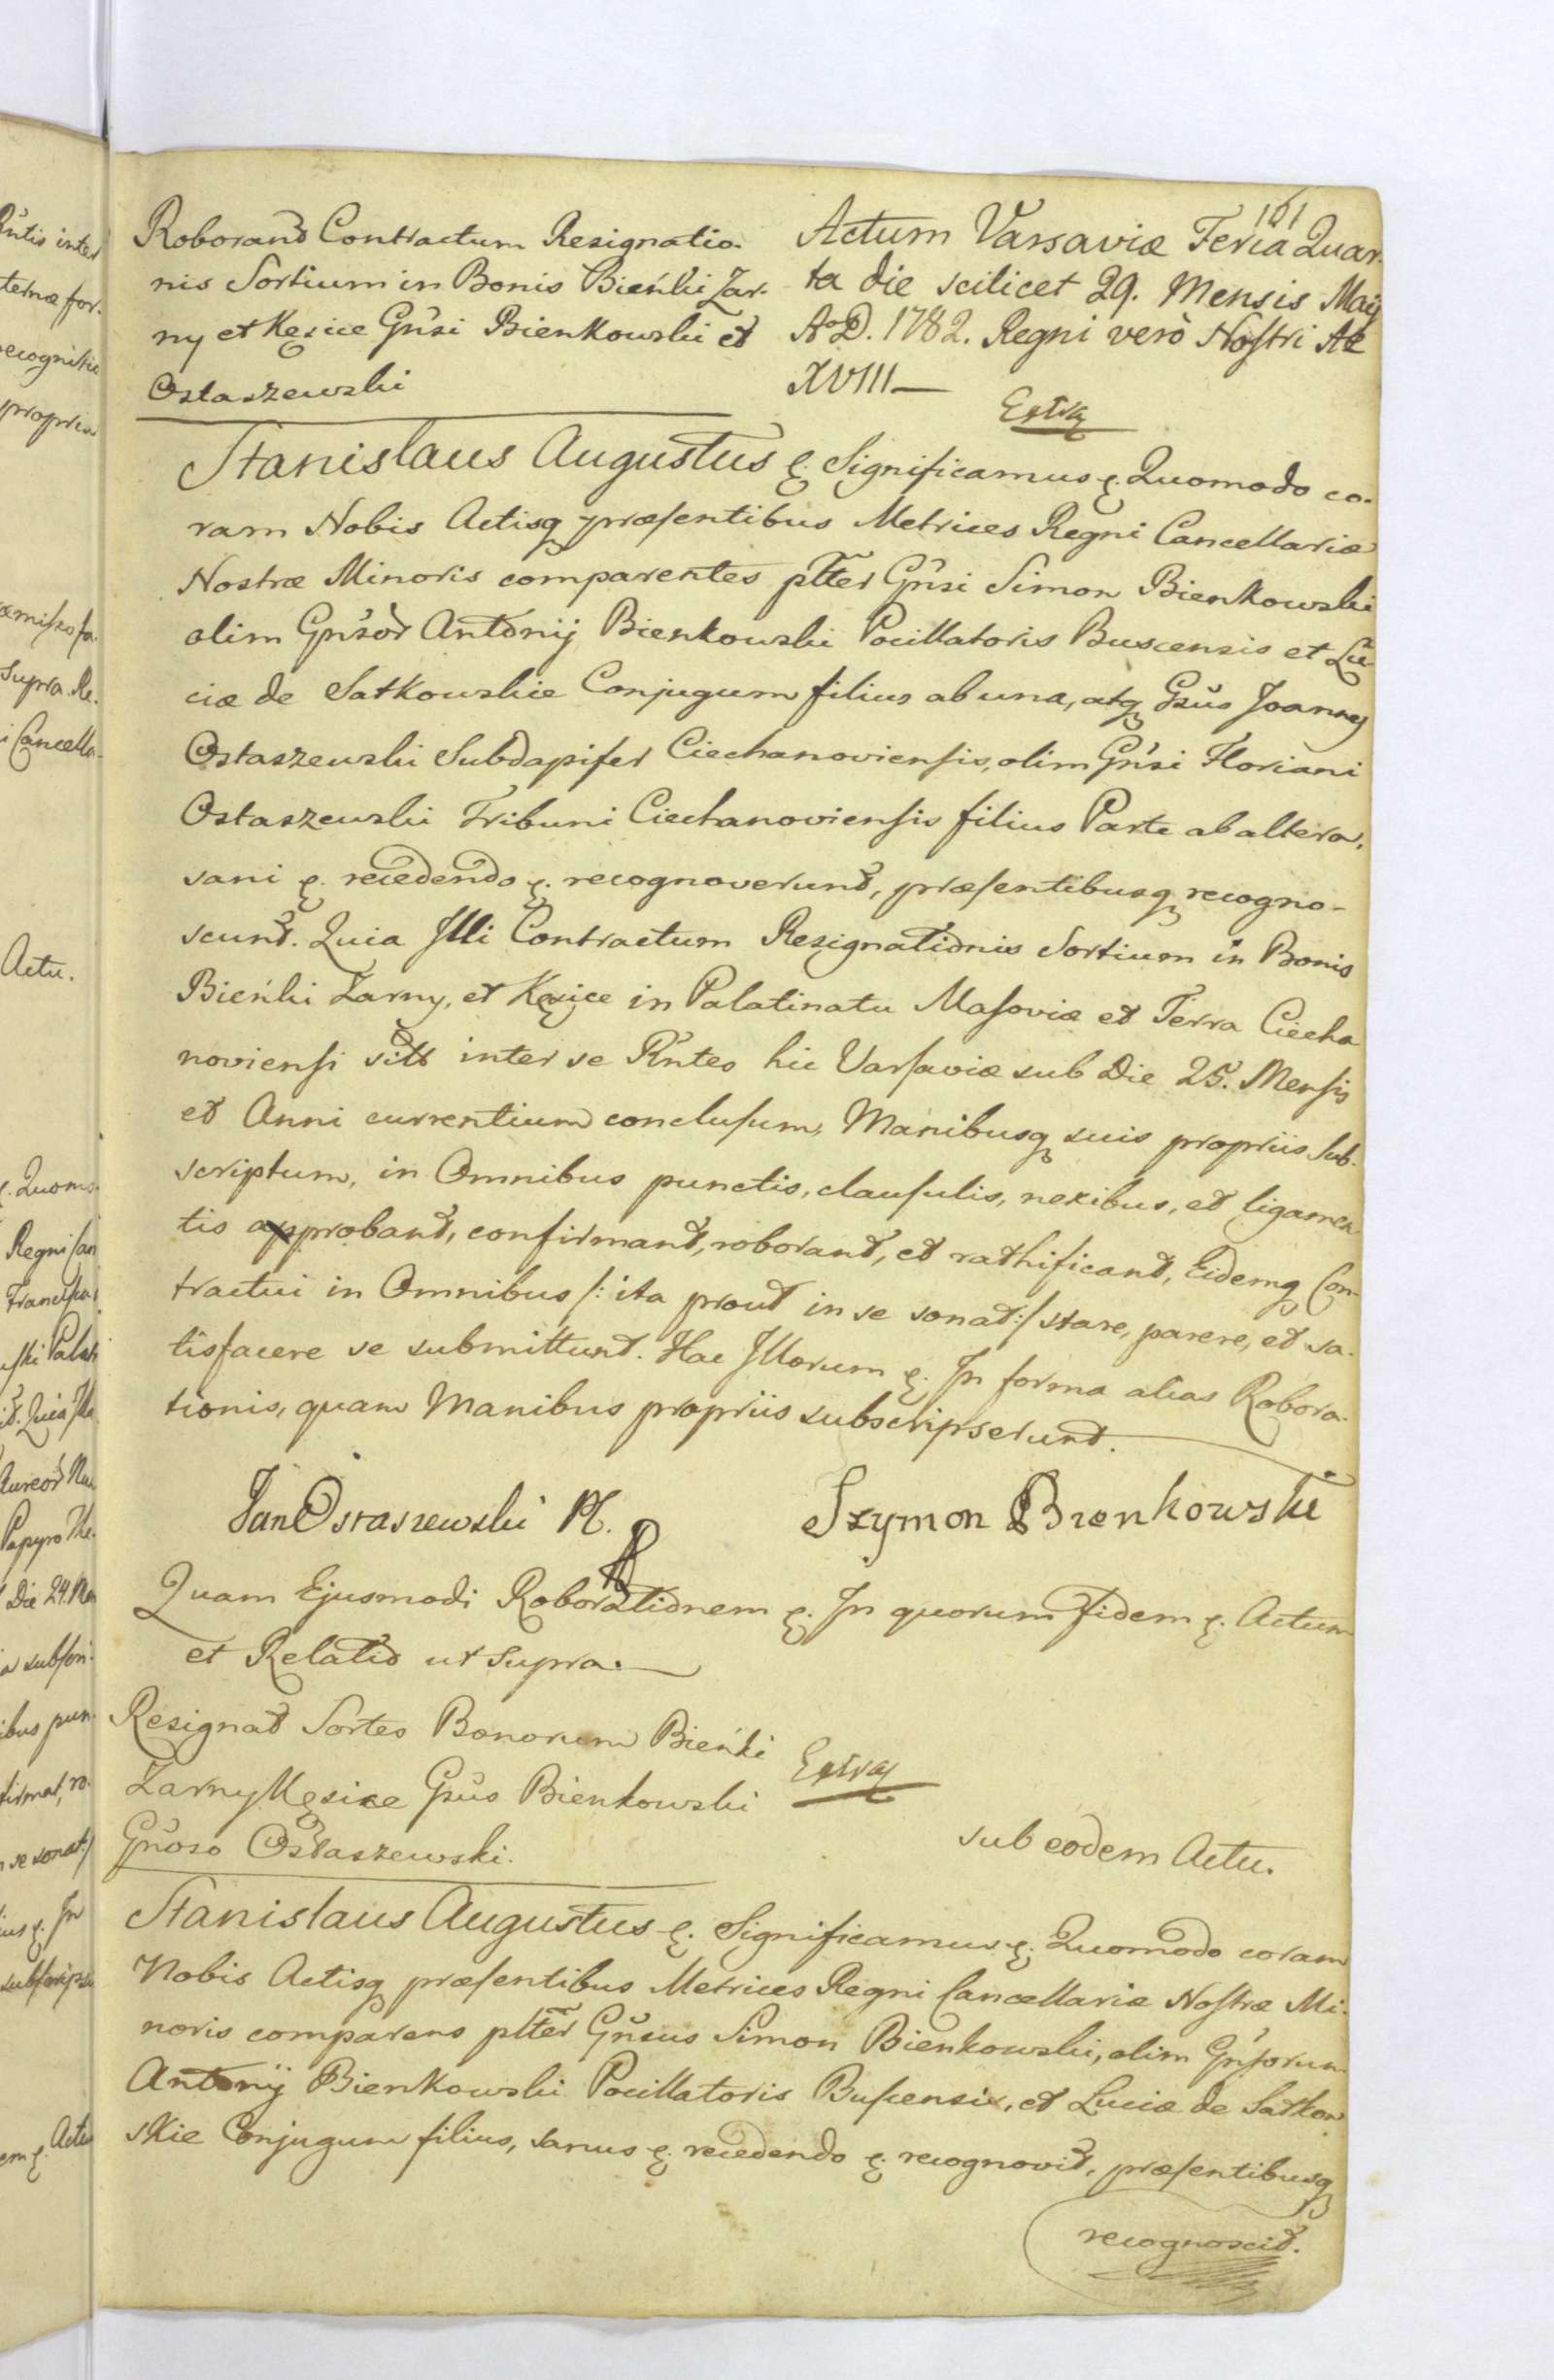 161
Roborand Contractum Resignatio-
nis Sortium in Bonis Bieńki Zar-
ny et Kęsice Gn̄si Bienkowski et
Ostaszewski
Actum Varsaviæ Feria Quar-
ta die scilicet 29. Mensis Maij
AoD. 1782. Regni verò Nostri A
XVIII
Extr
Stanislaus Augustus ę. Significamus ę. Quomodo co-
ram Nobis Actisq præsentibus Metrices Regni Cancellariæ
Nostræ Minoris comparentes pltter Gn̄si Simon Bienkowski
olim Gn̄sor Antonij Bienkowski Pocillatoris Buscensis et Lu-
ciæ de Satkowskie Conjugum filius ab una, atq Gsus Joannes
Ostaszewski Subdapifer Ciechanoviensis, olim Gn̄si Floriani
Ostaszewski Tribuni Ciechanoviensis filius Parte ab altera,
sani ę. recedendo ę. recognoverunt, præsentibusq recogno-
scunt. Quia Illi Contractum Resignationis Sortium in Bonis
Bieńki Zarny, et Kęsice in Palatinatu Masoviæ et Terra Ciecha
noviensi sitt inter se Rn̄tes hic Varsaviæ sub Die 25. Mensis
et Anni currentium conclusum, Manibusq suis propriis sub-
scriptum, in Omnibus punctis, clausulis, nexibus, et ligamen
tis approbant, confirmant, roborant, et rathificant, Eidemq Con-
tractui in Omnibus /: ita prout in se sonat :/ stare, parere, et sa-
tisfacere se submittunt. Hac Illorum ę. In forma alias Robora-
tionis, quam Manibus propriis subscripserunt.
Jan Ostaszewski
Szymon Bienkowski
Quam Ejusmodi Roborationem ę. In quorum Fidem ę. Actum
et Relatio ut supra.
Resignat Sortes Bonorum Bieńki
Zarny Kęsice Gsus Bienkowski
Gn̄oso Ostaszewski.
Extr
sub eodem Actu.
Stanislaus Augustus ę. Significamus ę. Quomodo coram
Nobis Actisq præsentibus Metrices Regni Cancellariæ Nostræ Mi-
noris comparens pltter Gn̄sus Simon Bienkowski, olim Gn̄sorum
Antonij Bienkowski Pocillatoris Buscensis, et Luciæ de Satkow
skie Conjugum filius, sanus ę. recedendo ę. recognovit, præsentibusq
recognoscit.